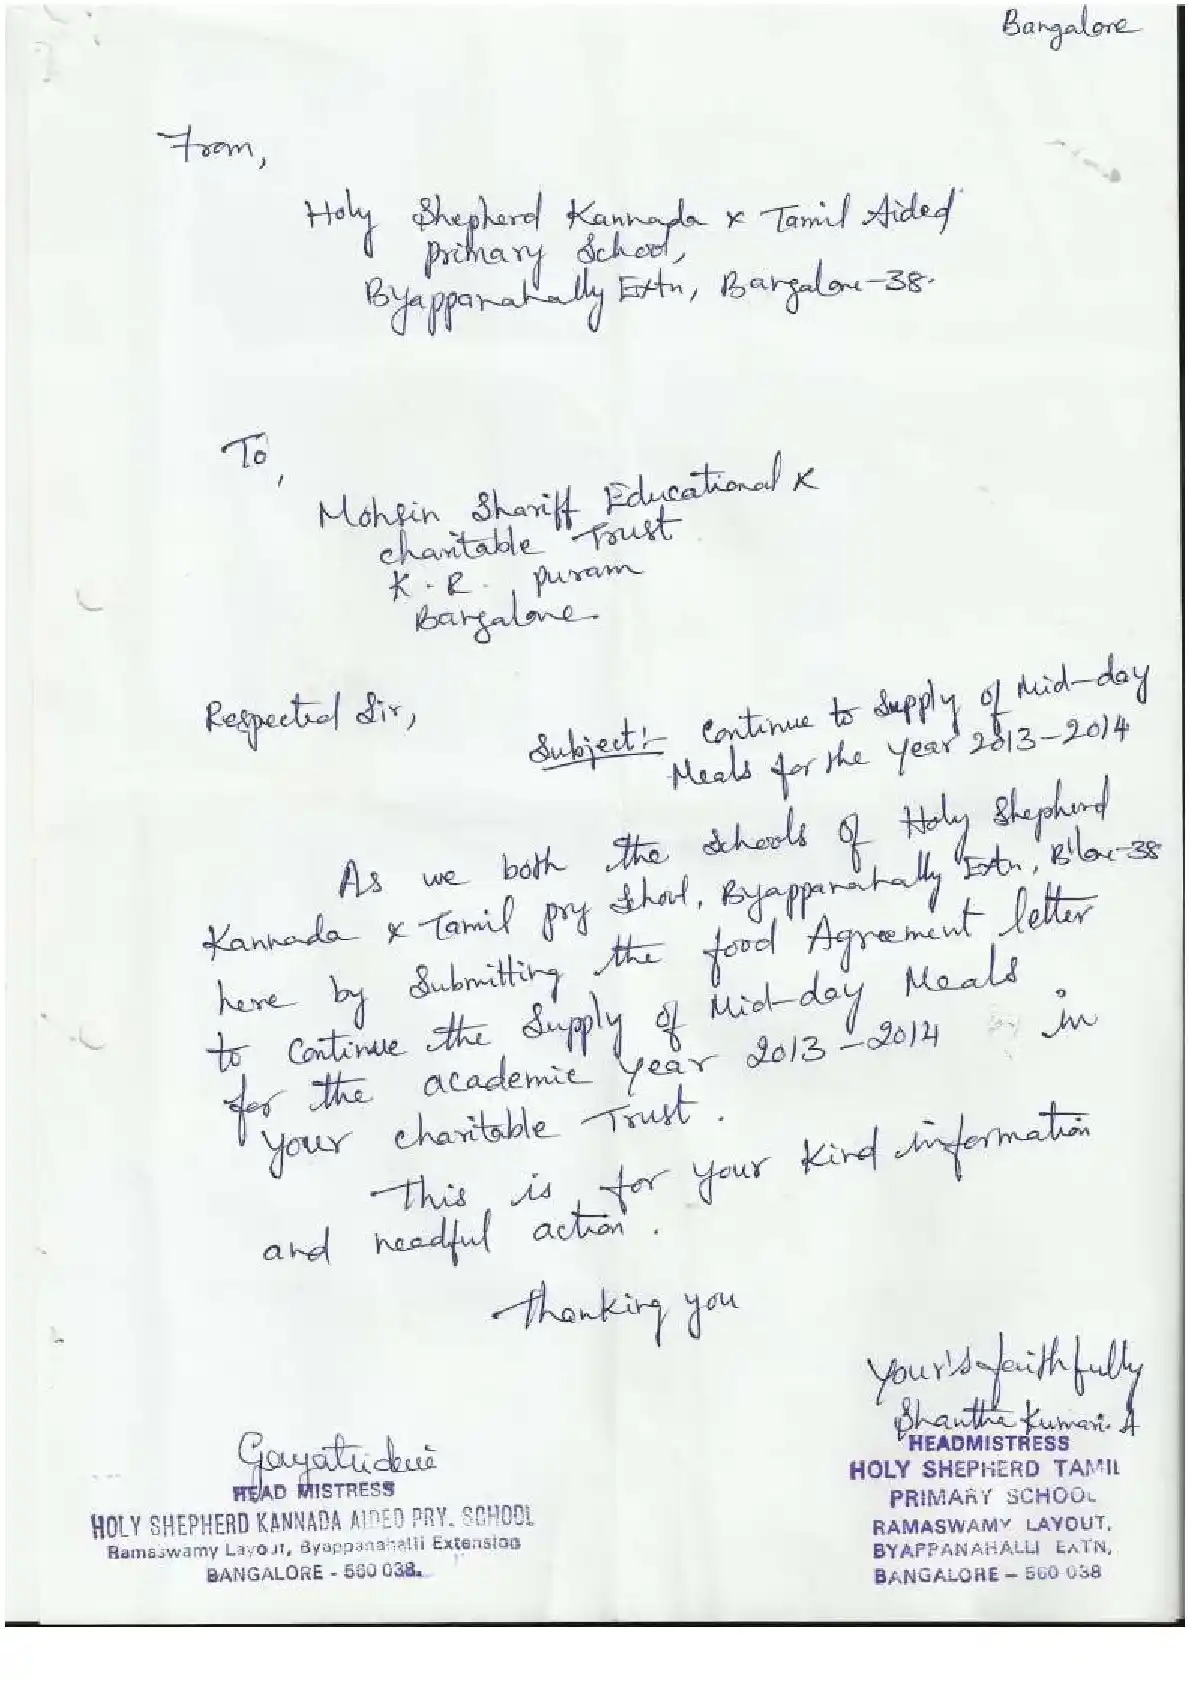 Bangalore
From,
Holy Shepherd Kannada & Tamil Aided
Primary School,
Byappanahally Extn, Bangalore-38.
To,
Mohsin Shariff Educational &
charitable Trust
K. R. Puram
Bangalore.
Respected Sir,
Subject:- Continue to Supply of Mid-day
Meals for the year 2013-2014
As we both the Schools of Holy Shepherd
Kannada & Tamil pry School, Byappanahally Extn, B'lore-38
here by Submitting the food Agreement letter
to continue the Supply of Mid-day Meals
for the academic year 2013-2014 in
your charitable Trust.
This is for your kind information
and needful action.
Thanking you
Your's faithfully
Shantha Kumari. A
HEADMISTRESS
HOLY SHEPHERD TAMIL
PRIMARY SCHOOL
RAMASWAMY LAYOUT,
BYAPPANAHALLI EXTN,
BANGALORE - 560 038
Gayatridevi
HEAD MISTRESS
HOLY SHEPHERD KANNADA AIDED PRY. SCHOOL
Ramaswamy Layout, Byappanahalli Extension
BANGALORE - 560 038.